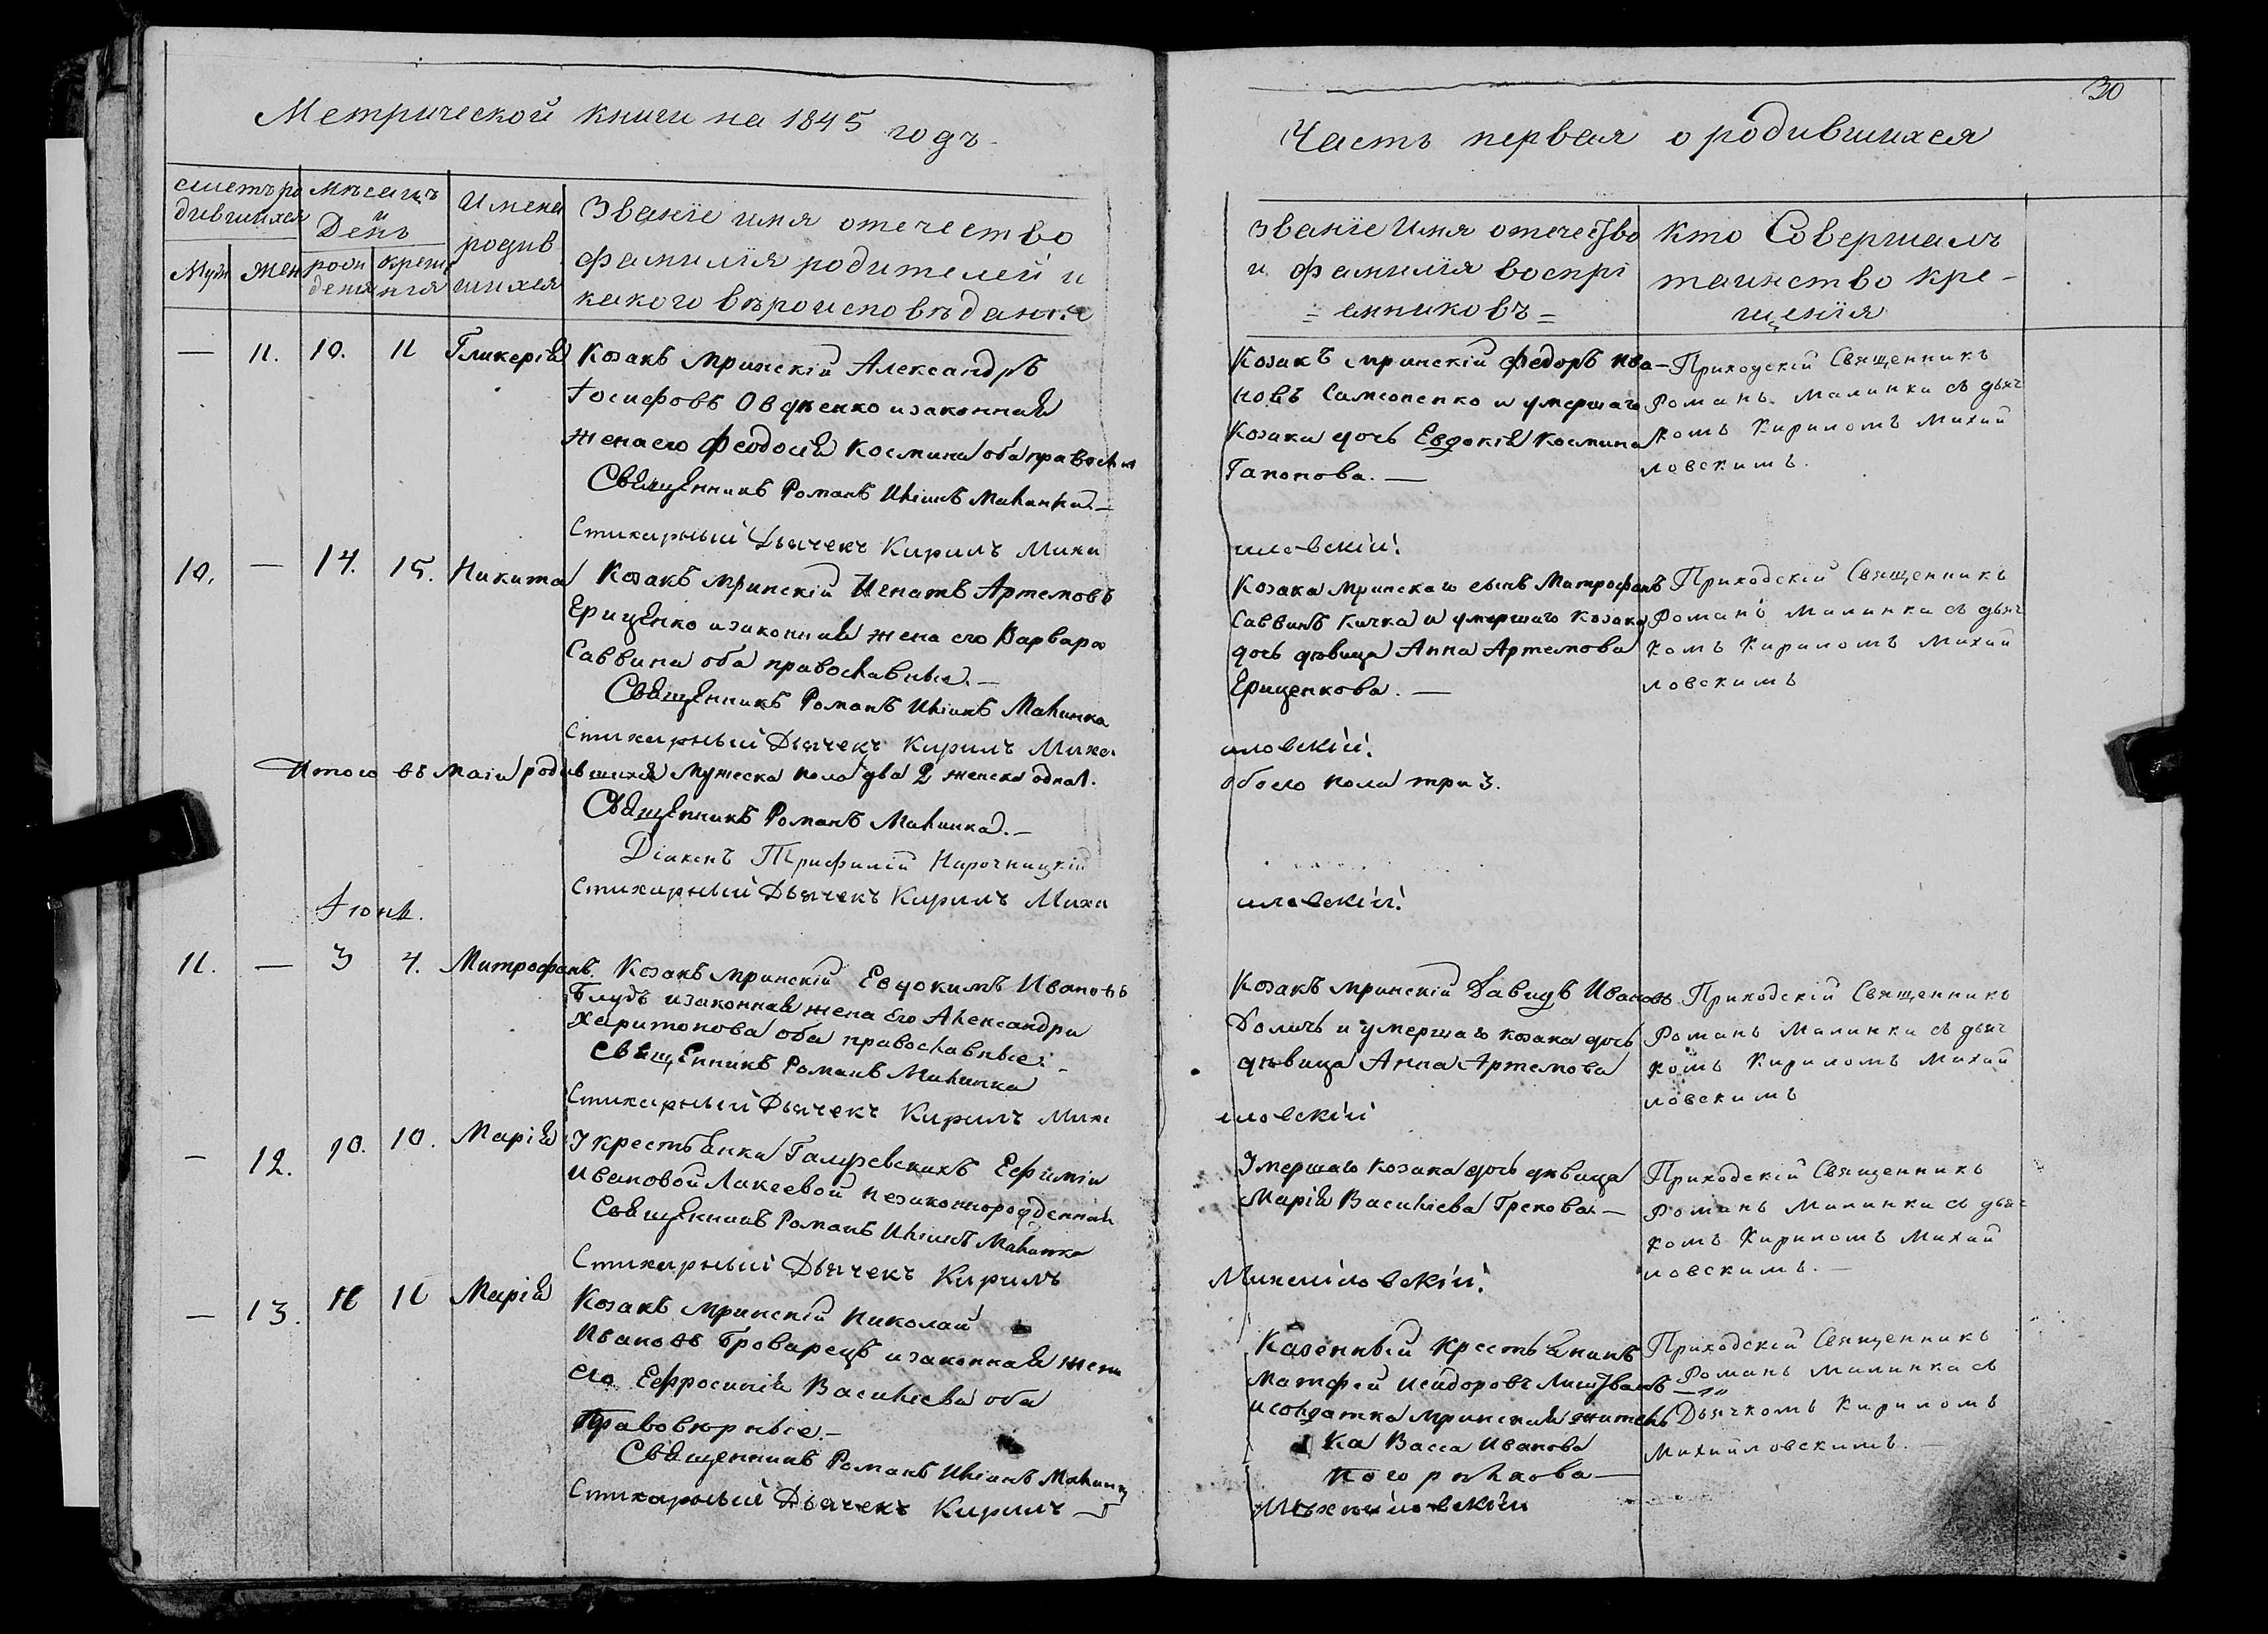 Метрической книги на 1845 годъ
счетъ ро
дившихся
Муж
жен
мѣсяцъ
и
День
рожи
денія
креще
нія
Имена
родив
шихся
Званіе имя отечество
фамилія родителей и
какого вѣроисповѣданія
—
11.
10.
11
Гликерія
Козакъ мринскій Александръ
Іосифовъ Овдѣенко и законная
жена его Феодосія Космина оба православн
Священникъ Романъ Малинка.—
Стихарный Дьячекъ Кирилъ Миха
10.
—
14.
15.
Никита
Козакъ мринскій Игнатъ Артемовъ
Ериценко и законная жена его Варвара
Саввина оба православные.—
Священникъ Романъ Малинка
Стихарный Дьячекъ Кирилъ Миха
Итого въ маіи родившихся мужеска пола два 2 женска одна 1.
Священникъ Романъ Малинка.—
Діаконъ Трифилій Нарочницкій
Стихарный Дьячекъ Кирилъ Миха
Іюнь.
11.
—
3
4.
Митрофанъ.
Козакъ мринскій Евдокимъ Ивановъ
Блудъ и законная жена его Александра
Харитонова оба православные.
Священникъ Романъ Малинка
Стихарный Дьячекъ Кирилъ Миха
—
12.
10.
10.
Марія
У крестьянки Ефиміи
Ивановой Лакеевой незаконнорожденная
Священникъ Романъ Малинка
Стихарный Дьячекъ Кирилъ
—
13.
11
11
Марія
Козакъ мринскій Николай
Ивановъ Броварецъ и законная жена
его Ефросинія Василіева оба
Православные.—
Священникъ Романъ Малинка
Стихарный Дьячекъ Кирилъ —
30
Часть первая о родившихся
Званіе Имя отечество
и фамилія воспрі
= емниковъ =
кто Совершалъ
таинство кре-
щенія
Козакъ мринскій Федоръ Ива-
новъ Самсоненко и умершаго
Козака дочь Евдокія Космина
Гапонова. —
Приходскій Священникъ
Романъ Малинка съ дьяч
комъ Кириломъ Михай
ловскимъ.
иловскій.
Козака мринскаго сынъ Митрофанъ
Саввинъ Кичка и умершаго козака
дочь дѣвица Анна Артемова
Ериценкова. —
Приходскій Священникъ
Романъ Малинка съ дьяч
комъ Кириломъ Михай
ловскимъ
иловскій.
обоего пола три 3.
иловскій.
Козакъ мринскій Давидъ Ивановъ
и умершаго козака дочь
дѣвица Анна Артемова
Приходскій Священникъ
Романъ Малинка съ дьяч
комъ Кириломъ Михай
ловскимъ
иловскій
Умершаго козака дочь дѣвица
Марія Василіева Грекова. —
Приходскій Священникъ
Романъ Малинка съ дьяч
комъ Кириломъ Михай
ловскимъ. —
Михаиловскій.
Казенный крестьянинъ
Матфей Исидоровъ
и солдатка мринская житель
ка Васса Иванова
Погорѣлкова —
Приходскій Священникъ
Романъ Малинка съ
Дьячкомъ Кириломъ
Михайловскимъ. —
Михаиловскій